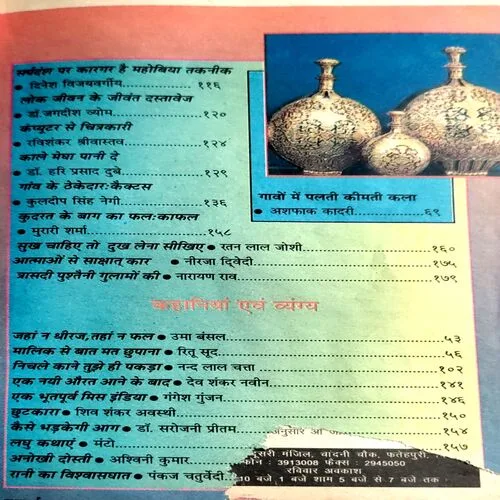 सर्पदंश पर कारगर है महोबिया तकनीक
● दिनेश विजयवर्गीय..........११६
लोक जीवन के जीवंत दस्तावेज
● डॉ.जगदीश व्योम..........१२०
कंप्यूटर से चित्रकारी
● रविशंकर श्रीवास्तव..........१२४
काले मेघा पानी दे
● डॉ. हरि प्रसाद दुबे..........१२९
गांव के ठेकेदार:कैक्टस
● कुलदीप सिंह नेगी..........१३६
कुदरत के बाग का फल:काफल
● मुरारी शर्मा..........१५८
सुख चाहिए तो दुख लेना सीखिए ● रतन लाल जोशी..........१६०
आत्माओं से साक्षात् कार ● नीरजा द्विवेदी..........१७५
त्रासदी पुश्तैनी गुलामों की ● नारायण राव..........१७९
गावों में पलती कीमती कला
● अशफाक कादरी..........६९
कहानियां एवं व्यंग्य
जहां न धीरज,तहां न फल ● उमा बंसल..........५३
मालिक से बात मत छुपाना ● रितू सूद..........५६
निचले काने तुझे ही पकड़ा ● नन्द लाल चत्ता..........१०२
एक नयी औरत आने के बाद ● देव शंकर नवीन..........१४१
एक भूतपूर्व मिस इंडिया ● गंगेश गुंजन..........१४६
छुटकारा ● शिव शंकर अवस्थी..........१५०
कैसे भड़केगी आग ● डॉ. सरोजनी प्रीतम..........१५४
लघु कथाएं ● मंटो..........१५७
अनोखी दोस्ती ● अश्विनी कुमार
रानी का विश्वासघात ● पंकज चतुर्वेदी
अनुसार
दूसरी मंजिल, चांदनी चौक, फतेहपुरी.
फोन : 3913008 फैक्स : 2945050
रविवार अवकाश
10 बजे,1 बजे शाम 5 बजे से 7 बजे तक